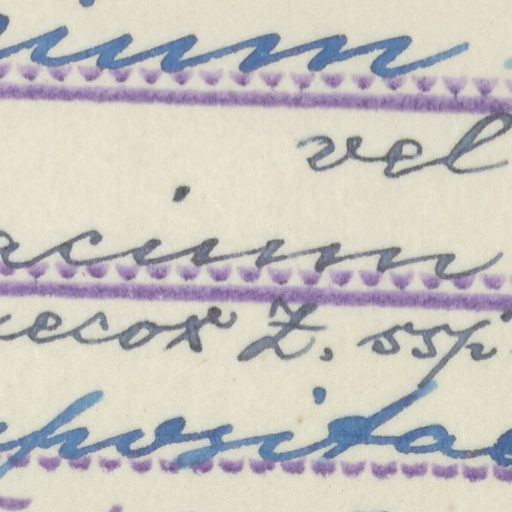 ium
vel
acium
ecox Z. ssp
positae